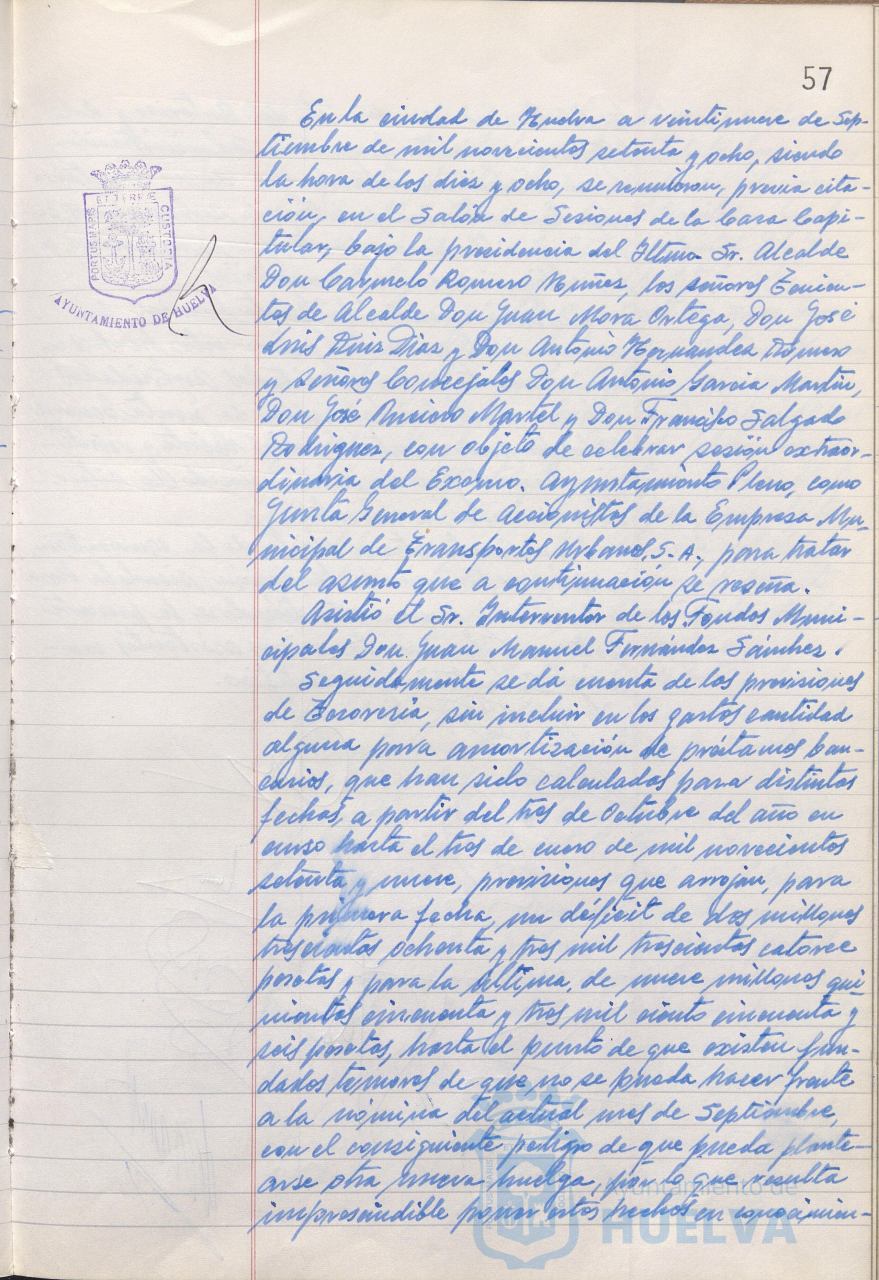 57
En la ciudad de Huelva a veintinueve de Sep-
tiembre de mil novecientos setenta y ocho, siendo
la hora de las diez y ocho, se reunieron, previa cita-
ción, en el Salón de Sesiones de la Casa Capi-
tular, bajo la presidencia del Iltmo. Sr. Alcalde
Don Carmelo Romero Núñez, los señores Tenien-
tes de Alcalde Don Juan Mora Ortega, Don José
Luis Ruiz Díaz y Don Antonio Hernández Romero
y señores Concejales Don Antonio García Martín,
Don José Martel y Don Francisco Salgado
Rodríguez, con objeto de celebrar sesión extraor-
dinaria del Excmo. Ayuntamiento Pleno, como
Junta General de Accionistas de la Empresa Mu-
nicipal de Transportes Urbanos, S.A., para tratar
del asunto que a continuación se reseña.
Asistió el Sr. Interventor de los Fondos Muni-
cipales Don Juan Manuel Fernández Sánchez.
Seguidamente se dá cuenta de las previsiones
de Tesorería, sin incluir en los gastos cantidad
alguna para amortización de préstamos ban-
carios, que han sido calculados para distintas
fechas, a partir del tres de Octubre del año en
curso hasta el tres de enero de mil novecientos
setenta y nueve, previsiones que arrojan, para
la primera fecha, un déficit de dos millones
trescientas ochenta y tres mil trescientas catorce
pesetas y para la última, de nueve millones qui-
nientas cincuenta y tres mil ciento cincuenta y
seis pesetas, hasta el punto de que existen fun-
dados temores de que no se pueda hacer frente
a la nómina del actual mes de Septiembre,
con el consiguiente peligro de que pueda plante-
arse otra nueva huelga, por lo que resulta
imprescindible poner estos hechos en conocimien-
PORTUS MARIS ET TERRE CUSTODIA
AYUNTAMIENTO DE HUELVA
Ayuntamiento de
HUELVA